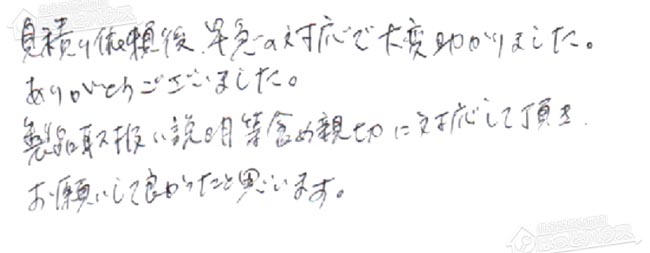 見積り依頼後、早急の対応で大変助かりました。
ありがとうございました。
製品取扱い説明等含め親切に対応して頂き
お願いして良かったと思います。